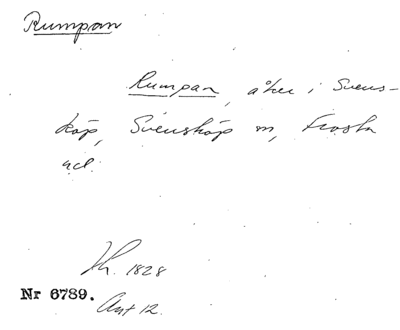 Rumpan
Rumpan, åker i Svens-
köp, Svensköp sn, Frosta
hd.
Lh. 1828
Nr 6789.
Akt 12.